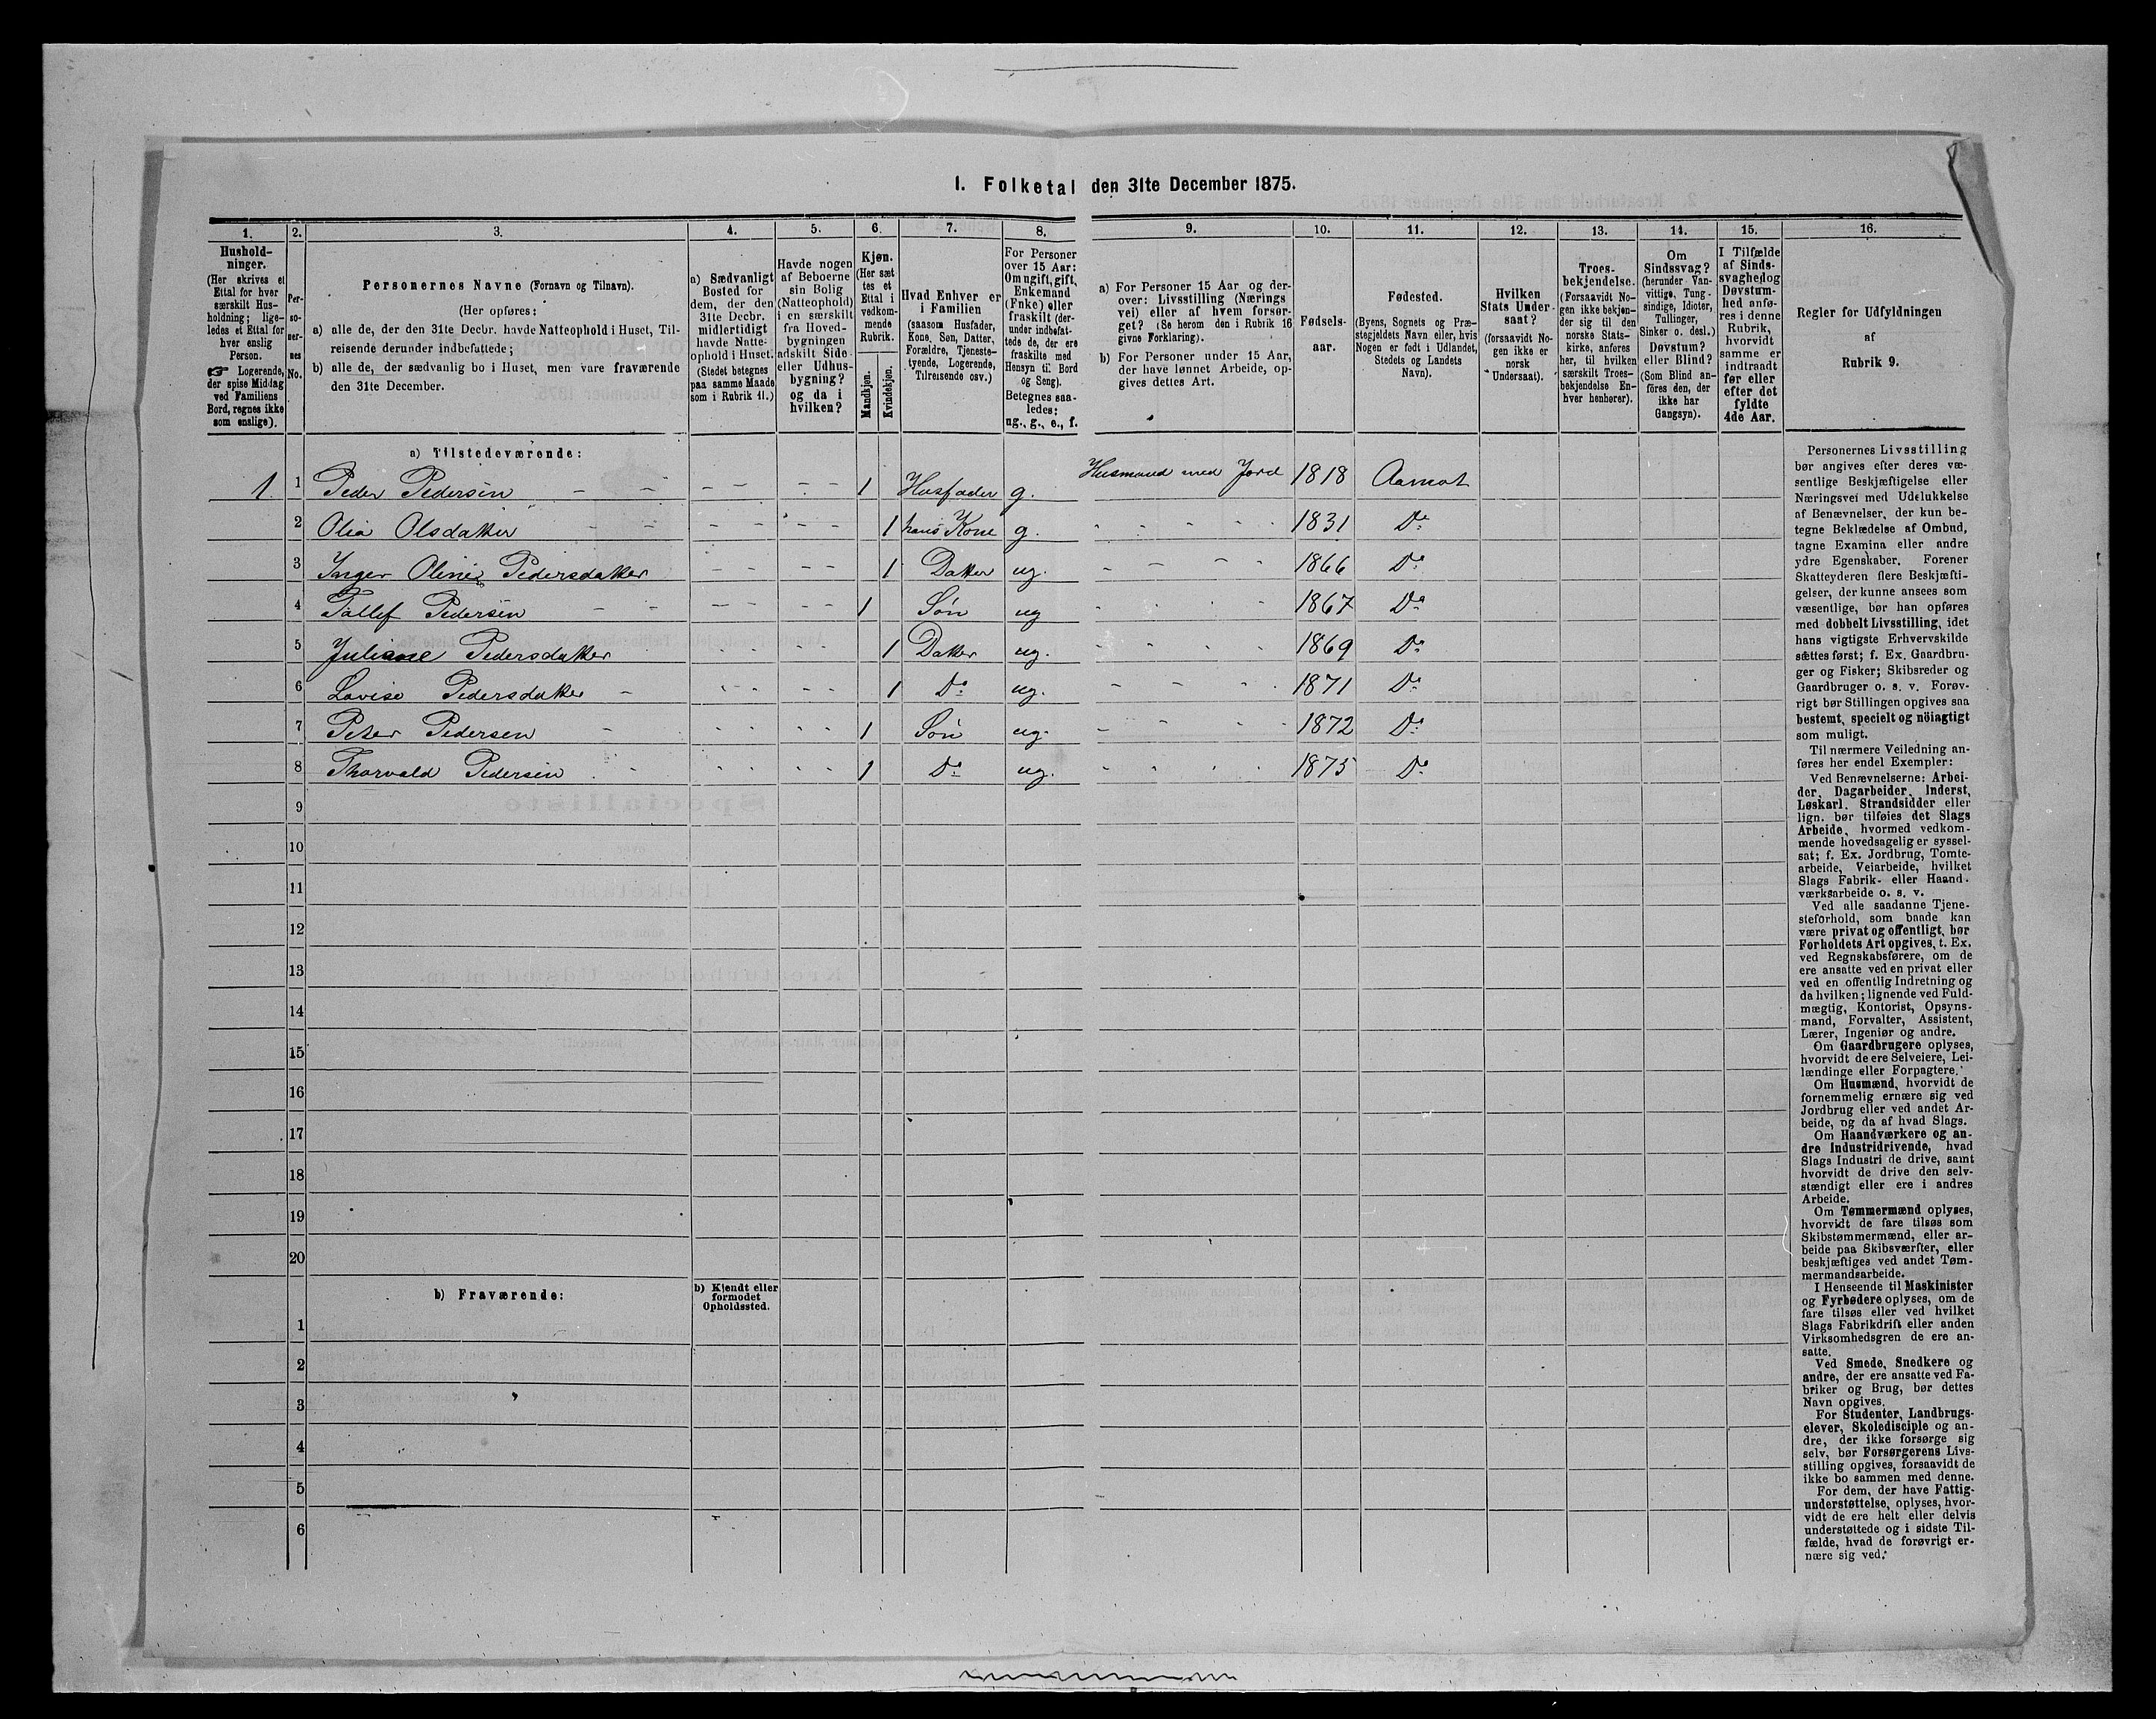 1. Folketal den 31te December 1875.
1. 2. 3. 4. 5. 6. 7. 8. 9. 10. 11. 12. 13. 14. 15. 16.
Hushold-
ninger.
(Her skrives et
Ettal for hver
særskilt Hus-
holdning; lige-
ledes et Ettal for
hver enslig
Person.
☞ Logerende,
der spise Middag
ved Familiens
Bord, regnes ikke
som enslige).
Per-
so-
ner-
nes
No.
Personernes Navne (Fornavn og Tilnavn).
(Her opføres:
a) alle de, der den 31te Decbr. havde Natteophold i Huset, Til-
reisende derunder indbefattede;
b) alle de, der sædvanlig bo i Huset, men vare fraværende
den 31te December.
a) Sædvanligt
Bosted for
dem, der den
31te Decbr.
midlertidigt
havde Natte-
ophold i Huset.
(Stedet betegnes
paa samme Maade
som i Rubrik 11.)
Havde nogen
af Beboerne
sin Bolig
(Natteophold)
i en særskilt
fra Hoved-
bygningen
adskilt Side-
eller Udhus-
bygning?
og da i
hvilken?
Kjøn.
(Her sæt
tes et
Ettal i
vedkom-
mende
Rubrik.
Mandkjøn.
Kvindekjøn.
Hvad Enhver er
i Familien
(saasom Husfader,
Kone, Søn, Datter,
Forældre, Tjeneste-
tyende, Logerende,
Tilreisende osv.)
For Personer
over 15 Aar:
Om ugift, gift,
Enkemand
(Enke) eller
fraskilt (der-
under indbefat-
tede de, der ere
fraskilte med
Hensyn til Bord
og Seng).
Betegnes saa-
ledes:
ug., g., e., f.
a) For Personer 15 Aar og der-
over: Livsstilling (Nærings
vei) eller af hvem forsør-
get? (Se herom den i Rubrik 16
givne Forklaring).
b) For Personer under 15 Aar,
der have lønnet Arbeide, op-
gives dettes Art.
Fødsels-
aar.
Fødested.
(Byens, Sognets og Præ-
stegjeldets Navn eller, hvis
Nogen er født i Udlandet,
Stedets og Landets
Navn).
Hvilken
Stats Under-
saat?
(forsaavidt No-
gen ikke er
norsk
Undersaat).
Troes-
bekjendelse.
(Forsaavidt No-
gen ikke bekjen-
der sig til den
norske Stats-
kirke, anføres
her, til hvilken
særskilt Troes-
bekjendelse En-
hver henhører).
Om
Sindssvag?
(herunder Van-
vittige, Tung-
sindige, Idioter,
Tullinger,
Sinker o. desl.)
Døvstum?
eller Blind?
(Som Blind an-
føres den, der
ikke har
Gangsyn).
I Tilfælde
af Sinds-
svaghed og
Døvstum-
hed anfø-
res i denne
Rubrik,
hvorvidt
samme er
indtraadt
før eller
efter det
fyldte
4de Aar.
Regler for Udfyldningen
af
Rubrik 9.
a) Tilstedeværende:
1 1 Peder Pedersen 1 Husfader g. Husmand med Jord 1818 Aamot
2 Olia Olsdatter 1 hans Kone g. 1831 Do
3 Inger Oline Pedersdatter 1 Datter ug. 1866 Do
4 Tollef Pedersen 1 Søn ug 1867 Do
5 Juliane Pedersdatter 1 Datter ug. 1869 Do
6 Lovise Pedersdatter 1 Do ug. 1871 Do
7 Peter Pedersen 1 Søn ug. 1872 Do
8 Thorvald Pedersen 1 Do ug. 1875 Do
9
10
11
12
13
14
15
16
17
18
19
20
b) Fraværende:
b) Kjendt eller
formodet
Opholdssted.
1
2
3
4
5
6
Personernes Livsstilling
bør angives efter deres væ-
sentlige Beskjæftigelse eller
Næringsvei med Udelukkelse
af Benævnelser, der kun be-
tegne Beklædelse af Ombud,
tagne Examina eller andre
ydre Egenskaber. Forener
Skatteyderen flere Beskjæfti-
gelser, der kunne ansees som
væsentlige, bør han opføres
med dobbelt Livsstilling, idet
hans vigtigste Erhvervskilde
sættes først; f. Ex. Gaardbru-
ger og Fisker; Skibsreder og
Gaardbruger o. s. v. Forøv-
rigt bør Stillingen opgives saa
bestemt, specielt og nöiagtigt
som muligt.
Til nærmere Veiledning an-
føres her endel Exempler:
Ved Benævnelserne: Arbei-
der, Dagarbeider, Inderst,
Løskarl, Strandsidder eller
lign. bør tilføies det Slags
Arbeide, hvormed vedkom-
mende hovedsagelig er syssel-
sat; f. Ex. Jordbrug, Tomte-
arbeide, Veiarbeide, hvilket
Slags Fabrik- eller Haand-
værksarbeide o. s. v.
Ved alle saadanne Tjene-
steforhold, som baade kan
være privat og offentligt, bør
Forholdets Art opgives, t. Ex.
ved Regnskabsførere, om de
ere ansatte ved en privat eller
ved en offentlig Indretning og
da hvilken; lignende ved Fuld-
mægtig, Kontorist, Opsyns-
mand, Forvalter, Assistent,
Lærer, Ingeniør og andre.
Om Gaardbrugere oplyses,
hvorvidt de ere Selveiere, Lei-
lændinge eller Forpagtere.
Om Husmænd, hvorvidt de
fornemmelig ernære sig ved
Jordbrug eller ved andet Ar-
beide, og da af hvad Slags.
Om Haandværkere og an-
dre Industridrivende, hvad
Slags Industri de drive, samt
hvorvidt de drive den selv-
stændigt eller ere i andres
Arbeide.
Om Tømmermænd oplyses,
hvorvidt de fare tilsøs som
Skibstømmermænd, eller ar-
beide paa Skibsværfter, eller
beskjæftiges ved andet Tøm-
mermandsarbeide.
I Henseende til Maskinister
og Fyrbødere oplyses, om de
fare tilsøs eller ved hvilket
Slags Fabrikdrift eller anden
Virksomhedsgren de ere an-
satte.
Ved Smede, Snedkere og
andre, der ere ansatte ved Fa-
briker og Brug, bør dettes
Navn opgives.
For Studenter, Landbrugs-
elever, Skoledisciple og an-
dre, der ikke forsørge sig
selv, bør Forsørgerens Livs-
stilling opgives, forsaavidt de
ikke bo sammen med denne.
For dem, der have Fattig-
understøttelse, oplyses, hvor-
vidt de ere helt eller delvis
understøttede og i sidste Til-
fælde, hvad de forøvrigt er-
nære sig ved.